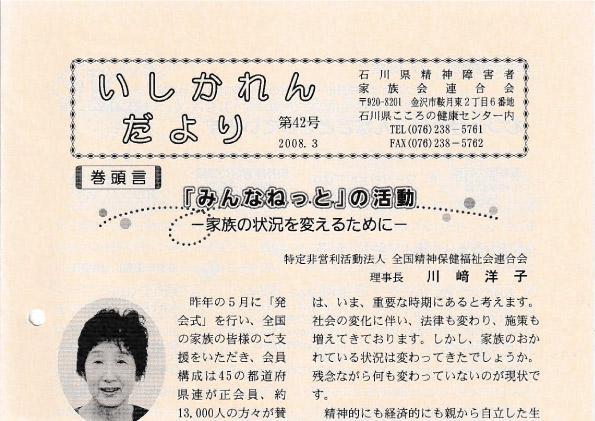 いしかれん
だより
第42号
2008.3
石川県精神障害者
家族会連合会
〒920-8201 金沢市鞍月東2丁目6番地
石川県こころの健康センター内
TEL(076)238－5761
FAX(076)238－5762
巻頭言
『みんなねっと』の活動
－家族の状況を変えるために－
特定非営利活動法人 全国精神保健福祉会連合会
理事長 川﨑洋子
昨年の5月に「発
会式」を行い、全国
の家族の皆様のご支
援をいただき、会員
構成は45の都道府
県連が正会員、約
13,000人の方々が賛
は、いま、重要な時期にあると考えます。
社会の変化に伴い、法律も変わり、施策も
増えてきております。しかし、家族のおか
れている状況は変わってきたでしょうか。
残念ながら何も変わっていないのが現状で
す。
精神的にも経済的にも親から自立した生